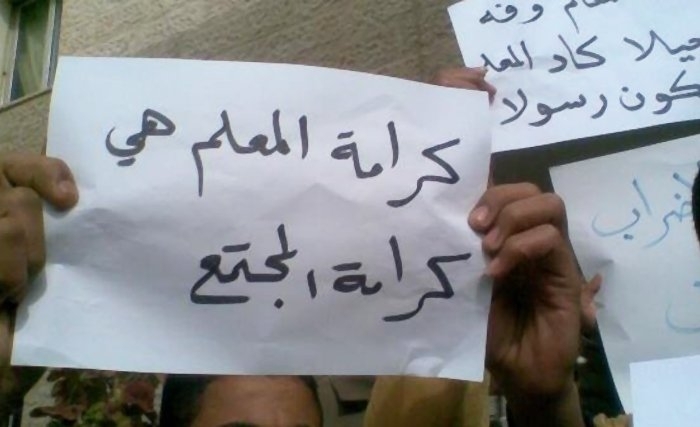 كرامة المعلم هي
كرامة المجتمع
وفه
يلا كاد المعل
كون رسولا
ضراب